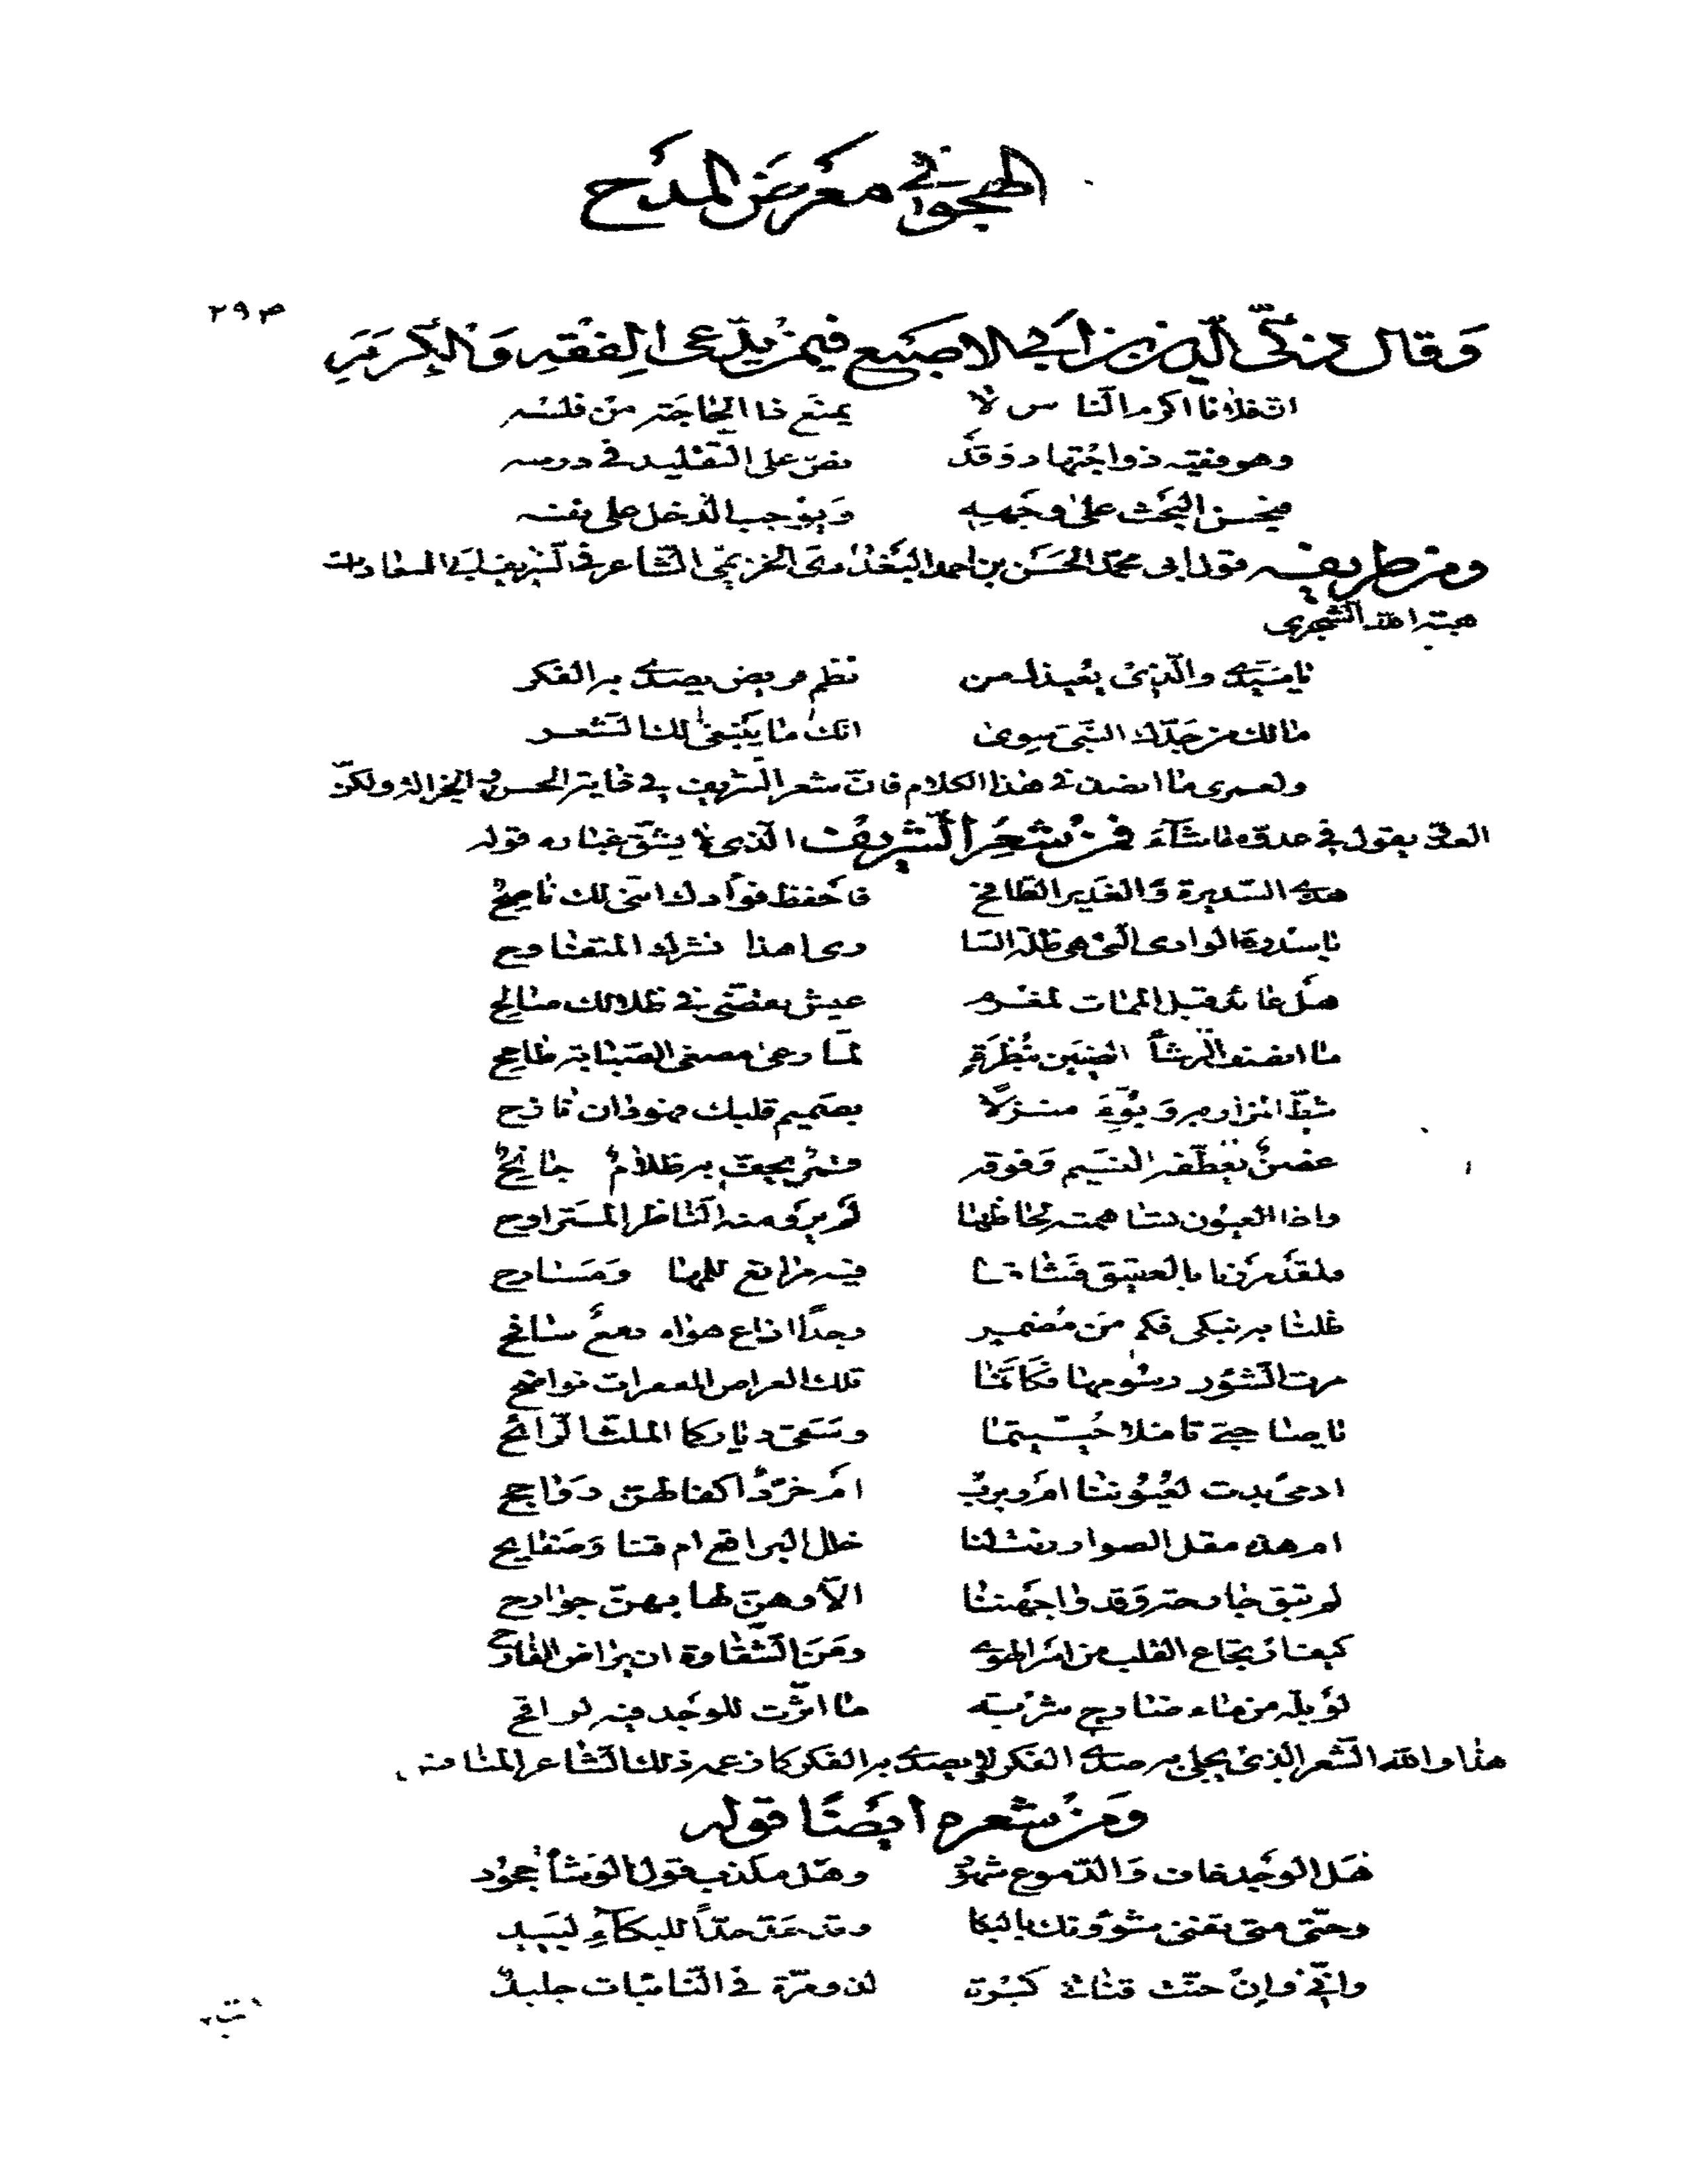 الهجو في معرض المدح
ص ٢٩
وَقال زكيّ الدّين بن أبي الاصبَع فيمن يدّعى الفِقْهِ وَالكرَمِ
انّ فلانا اكرم النّاس لا يمنَع ذا الحاجَة من فلسه
وهو فقيه ذو اجْتهاد وَقَد نصّ على التّقليد في درسه
فيحسن البَحْث على وَجْهِهِ وَيوْجب الدّخل على نفسه
ومن طريفه قول ابى محمّد الحَسَن بن احمد البَغْدادىّ الشّاعر في الشّريف ابى السعادات
هبة الله الشّجرى
يا سَيّدى والّذىْ يعْيذك من نظم قريض يصدى به الفكر
مالك من جَدّك النّبىّ سوى انّك ما يَنْبَغى لك الشّعر
ولعمرى ما انصف فى هذا الكلام فانّ شعر الشّريف في غاية الحسن والجزالة ولكنّ
العدوّ يقول في عدوّه ما شَآءَ فمنْ شعْر الشّريف الّذى لا يشقّ غباره قوله
هذى السّديرة وَالغَدير الطّافح فاحْفظ فؤادك انّنى لك ناصحٌ
يا سدرة الوادى الّذى
هل عائد قبل الممات لمغرم عيش تقضّى في ظلالك صالح
ما انصف الرّشأ الضنين بنظْرَةٍ لمّا دعى مصغى الصّبابة طامح
شطّ المزار به وَبُوّءَ منزلاً بصَميم قلبك فهو دان نازح
غصنٌ يعَطّفه النسيم وَفوقه قمرٌ يحفّ به ظلامٌ جانحٌ
واذا العيُون لحاظها لم يرو منه النّاظر المتراوح
ولقد مرَرْنا بالعقيق فشاقنا فيه مراتع للمها وَمَسارح
ظلنا به نبكى فكم من مُضمر وجدًا اذاع هواه دمعٌ سافح
مرت الشّؤن رسُومها فكأنّما تلك العراص المقفرات نواضح
يا صاحبَىّ تأمّلا حُيّيتما وسَقى دياركما الملثّ الرّائح
ادمىً بدت لعُيُوننا امْ ربربٌ امْ خرّدٌ اكفالهنّ رَواجح
ام هذه مقل الصوار رنت لنا خلل البراقع ام قنا وَصَفايح
لم تبق جارحة وَقد واجَهننا الاّ وهنّ لها بهنّ جوارح
كيف ارتجاع القلب من اسْر الهوى ومَنَ الشّقاوة ان يراض القارح
لوْ بلّه من ماء ضارج شرْبة ما اثّرت للوجْد فيه لواقح
هذا والله الشّعر الّذى يجلى به صدى الفكر لا يصدى به الفكر كما زعم ذلك الشّاعر
وَمنْ شعره أيضًا قوله
هَل الوَجْد خاف وَالدّموع شهوْد وهَل مكذب قول الوشاة جحوْد
وحتّى متى تفنى شؤونك بالبكا وقد حَدّ حدّاً للبكآءِ لبيد
وانّي وإنْ حنّت قناتي كبْرة لذو مرّة في النّائبات جليدٌ